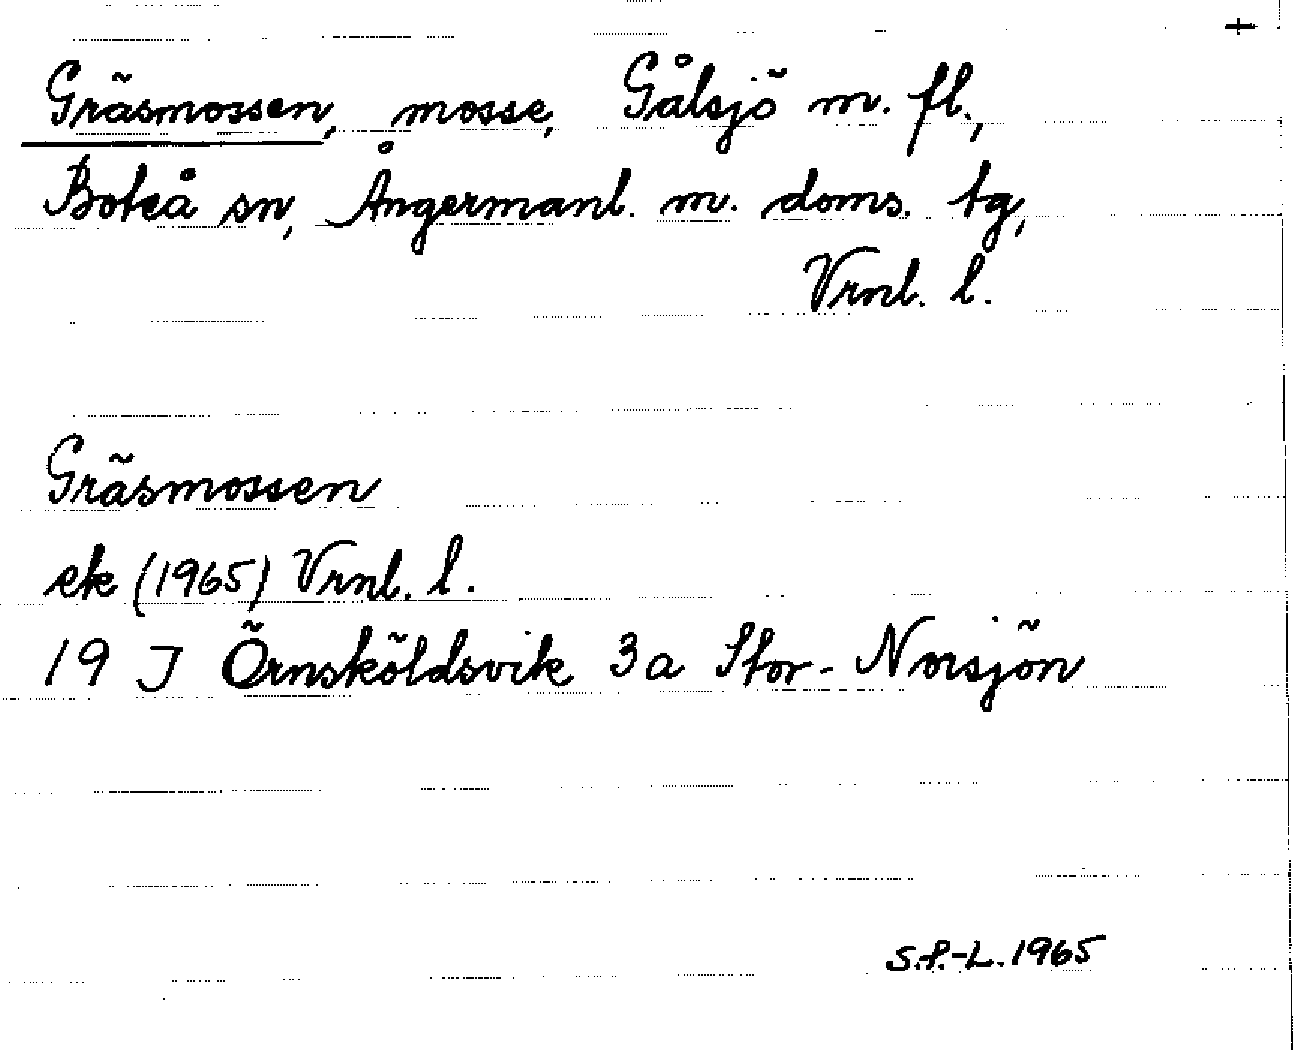 Gräsmossen, mosse, Gålsjö m. fl.,
Boteå sn, Ångermanl. m. doms. tg,
Vrnl. l.
Gräsmossen
ek (1965) Vrnl. l.
19 J Örnsköldsvik 3a Stor-Norsjön
S.P.-L. 1965